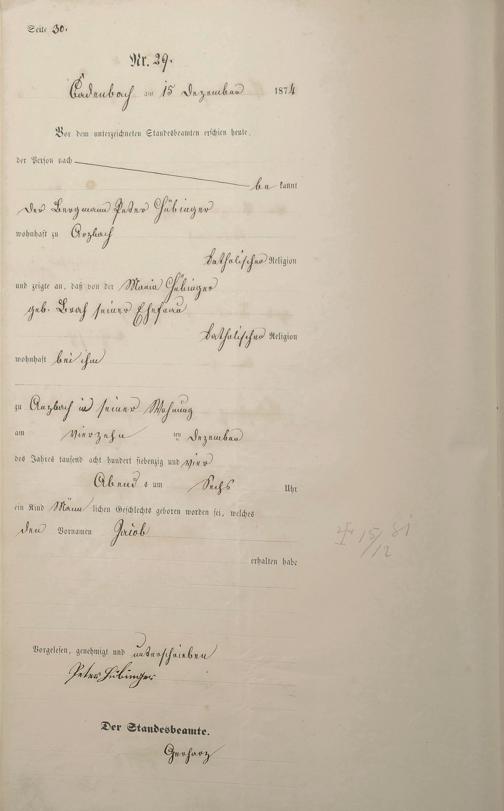 Seite 30.
Nr. 29.
Cadenbach am 15 Dezember 1874
Vor dem unterzeichneten Standesbeamten erschien heute,
der Person nach
be kannt
der Bergmann Peter Hübinger
wohnhaft zu Arzbach
katholischer Religion
und zeigte an, daß von der Maria Hübinger
geb. seiner Ehefrau
katholischer Religion
wohnhaft bei ihm
zu Arzbach in seiner Wohnung
am vierzehn ten Dezember
des Jahres tausend acht hundert siebenzig und vier
Abend s um Sechs Uhr
ein Kind Männ lichen Geschlechts geboren worden sei, welches
den Vornamen Jacob
erhalten habe
15/12
Vorgelesen, genehmigt und unterschrieben
Peter Hübinger
Der Standesbeamte.
Gerharz